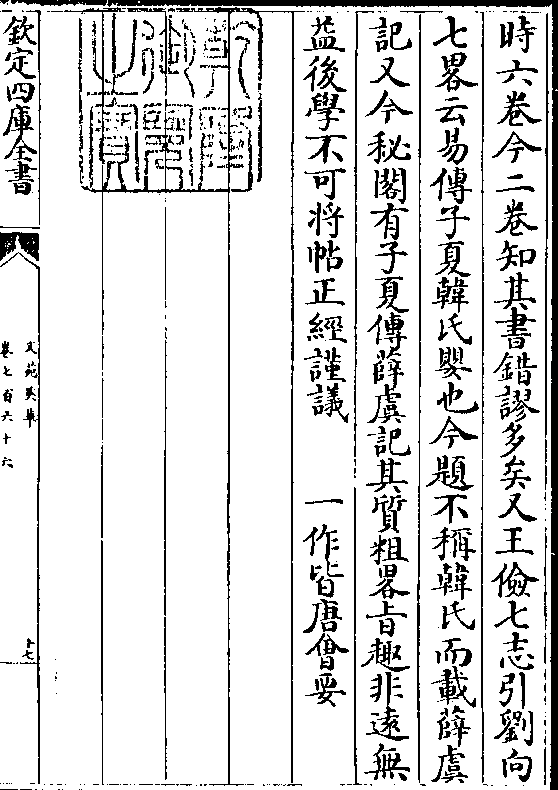 時六卷今二卷知其書錯謬多矣又王儉七志引劉向
七畧云易傳子夏韓氏嬰也今題不稱韓氏而載薛虞
記又今秘閣有子夏傳薛虞記其質粗畧旨趣非遠無
益後學不可將帖正經謹議　一作皆唐會要
乾隆御覽之寶
欽定四庫全書
文苑英華
卷七百六十六
十七